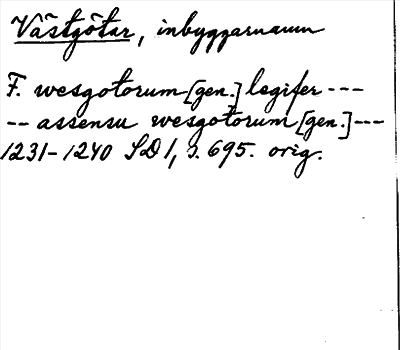 Västgötar, inbyggarnamn
F. wesgotorum [gen.] legifer ---
-- assensu wesgotorum [gen.] ---
1231-1240 SD 1, s. 695. orig.